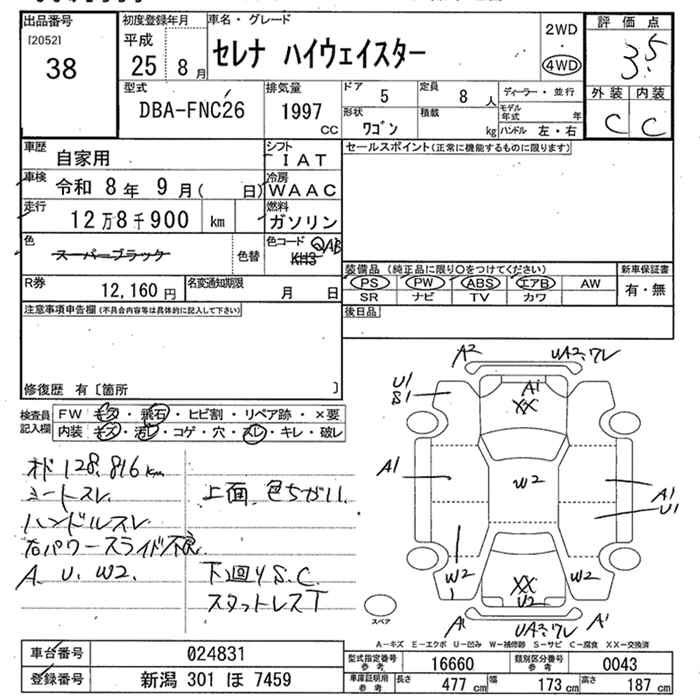 出品番号
[2052]
38
初度登録年月
平成
25 8 月
車名・グレード
セレナ ハイウェイスター
2WD
・
4WD
評価点
3.5
外装 内装
C C
型式
DBA-FNC26
排気量
1997 CC
ドア 5
定員 8 人
ディーラー・並行
形状 ワゴン
積載 kg
モデル年式 年
ハンドル 左・右
車歴 自家用
シフト IAT
車検 令和 8年 9月( 日)
冷房 WAAC
走行 12万8千900 km
燃料 ガソリン
色 スーパーブラック 色替
色コード KH3 QAB
R券 12,160円
名変通知期限 月 日
セールスポイント(正常に機能するものに限ります)
装備品 (純正品に限り○をつけてください)
PS PW ABS エアB AW
SR ナビ TV カワ
新車保証書
有・無
後日品
注意事項申告欄(不具合内容等は具体的に記入して下さい)
修復歴 有〔箇所 〕
検査員記入欄
FW キズ・飛石・ヒビ割・リペア跡・×要
内装 キズ・汚レ・コゲ・穴・スレ・キレ・破レ
オド128,816km
シートスレ
ハンドルスレ
右パワースライド不良
A. U. W2.
上面 色ちがい
下回りS.C.
スタットレスT
A2 UA2ワレ
U1
S1
A1
XX
A1
W2
A1
U1
W2
1
XX
U2
W2
A1 UA2ワレ A1
スペア
A-キズ E-エクボ U-凹み W-補修跡 S-サビ C-腐食 XX-交換済
車台番号 024831
登録番号 新潟 301 ほ 7459
型式指定番号 参考 16660
類別区分番号 参考 0043
車庫証明用 参考 長さ 477 cm 幅 173 cm 高さ 187 cm